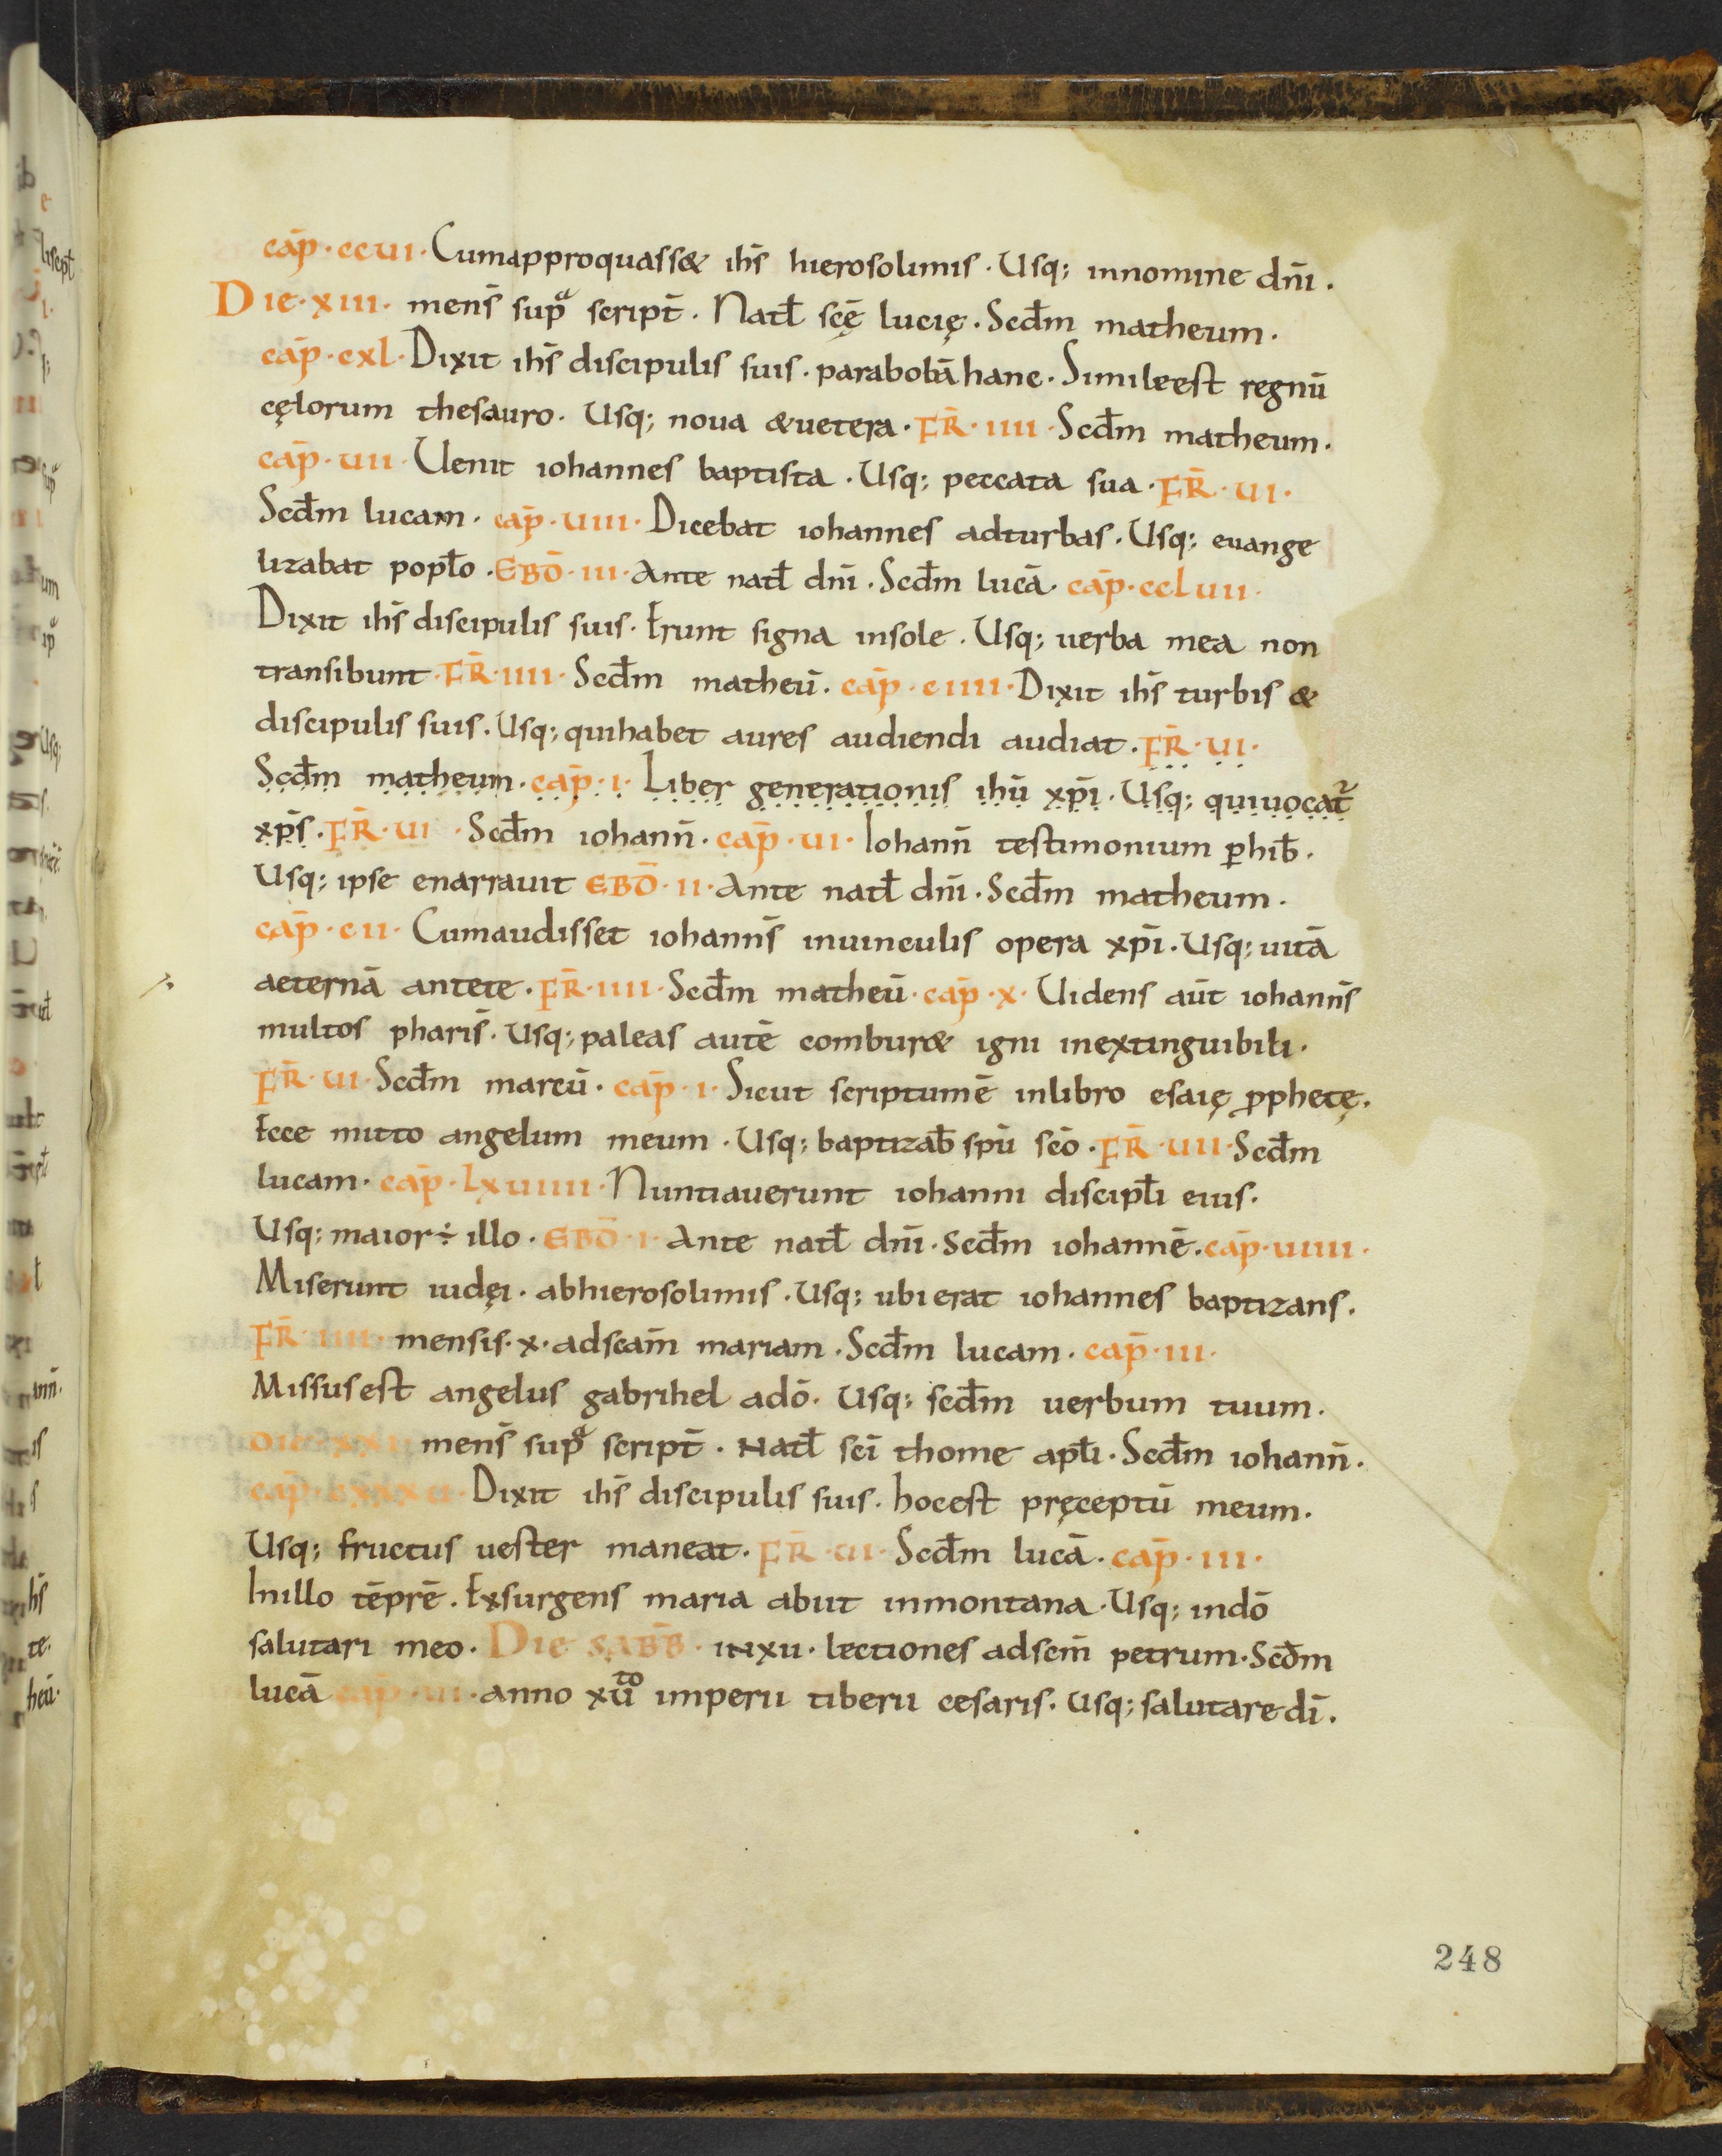 cap̄ · ccui · Cumapproquass& ihs̄ hierosolimis · Usq; innomine dn̄i .
Die · xiii · mens̄ supᵃ script̄ . Natł scę̄ lucię . Scd̄m matheum .
cap̄ · cxl · Dixit ihs̄ discipulis suis . parabolā hanc . Simileest regnū
cęlorum thesauro . Usq; noua &uetera . FR̄ · iiii · Scd̄m matheum .
cap̄ · uii · Uenit iohannes baptista . Usq; peccata sua . FR̄ · ui .
Scd̄m lucam . cap̄ · uiiii · Dicebat iohannes adturbas . Usq; euange
lizabat popło . EBD̄ · iii · Ante natł dn̄i . Scd̄m lucā . cap̄ · ccluii .
Dixit ihs̄ discipulis suis . Erunt signa insole . Usq; uerba mea non
transibunt . FR̄ · iiii · Scd̄m matheū . cap̄ · ciiii · Dixit ihs̄ turbis &
discipulis suis . Usq; quihabet aures audiendi audiat . FR̄ · ui .
Scd̄m matheum . cap̄ · i · Liber generationis ihū xp̄i . Usq; quiuocat᷑
xp̄s . FR̄ · ui · Scd̄m iohann̄ . cap̄ · ui · Iohann̄ testimonium ꝑhib̄ .
Usq; ipse enarrauit EBD̄ · ii · Ante natł dn̄i . Scd̄m matheum .
cap̄ · cii · Cumaudisset iohann̄s inuinculis opera xp̄i . Usq; uitā
aeternā antete . FR̄ · iiii · Scd̄m matheū · cap̄ · x · Uidens aūt iohann̄s
multos pharis̄ . Usq; paleas autē combur& igni inextinguibili .
FR̄ · ui · Scd̄m marcū . cap̄ · i · Sicut scriptumē inlibro esaię ꝓphetę .
Ecce mitto angelum meum . Usq; baptizab̄ sp̄u scō . FR̄ · uii · Scd̄m
lucam . cap̄ · lxuiiii · Nuntiauerunt iohanni discipłi eius .
Usq; maior ÷ illo . EBD̄ · i · Ante natł dn̄i . Scd̄m iohannē . cap̄ · uiiii .
Miserunt iudęi . abhierosolimis . Usq; ubierat iohannes baptizans .
FR̄ · iiii · mensis · x · adscam̄ mariam . Scd̄m lucam . cap̄ · iii ·
Missusest angelus gabrihel adō . Usq; scd̄m uerbum tuum .
DIE · xxi · mens̄ supᵃ script̄ . Natł sc̄i thome apłi . Scd̄m iohann̄ .
cap̄ · cxxxu · Dixit ihs̄ discipulis suis . hocest pręceptū meum .
Usq; fructus uester maneat . FR̄ · ui · Scd̄m lucā . cap̄ · iii ·
Inillo tēprē . Exsurgens maria abiit inmontana . Usq; indō
salutari meo . Die SABB̄ · inxii · lectiones adscm̄ petrum . Scd̄m
lucā cap̄ · ui · anno xuᵗᵒ imperii tiberii cesaris . Usq; salutare dī .
248